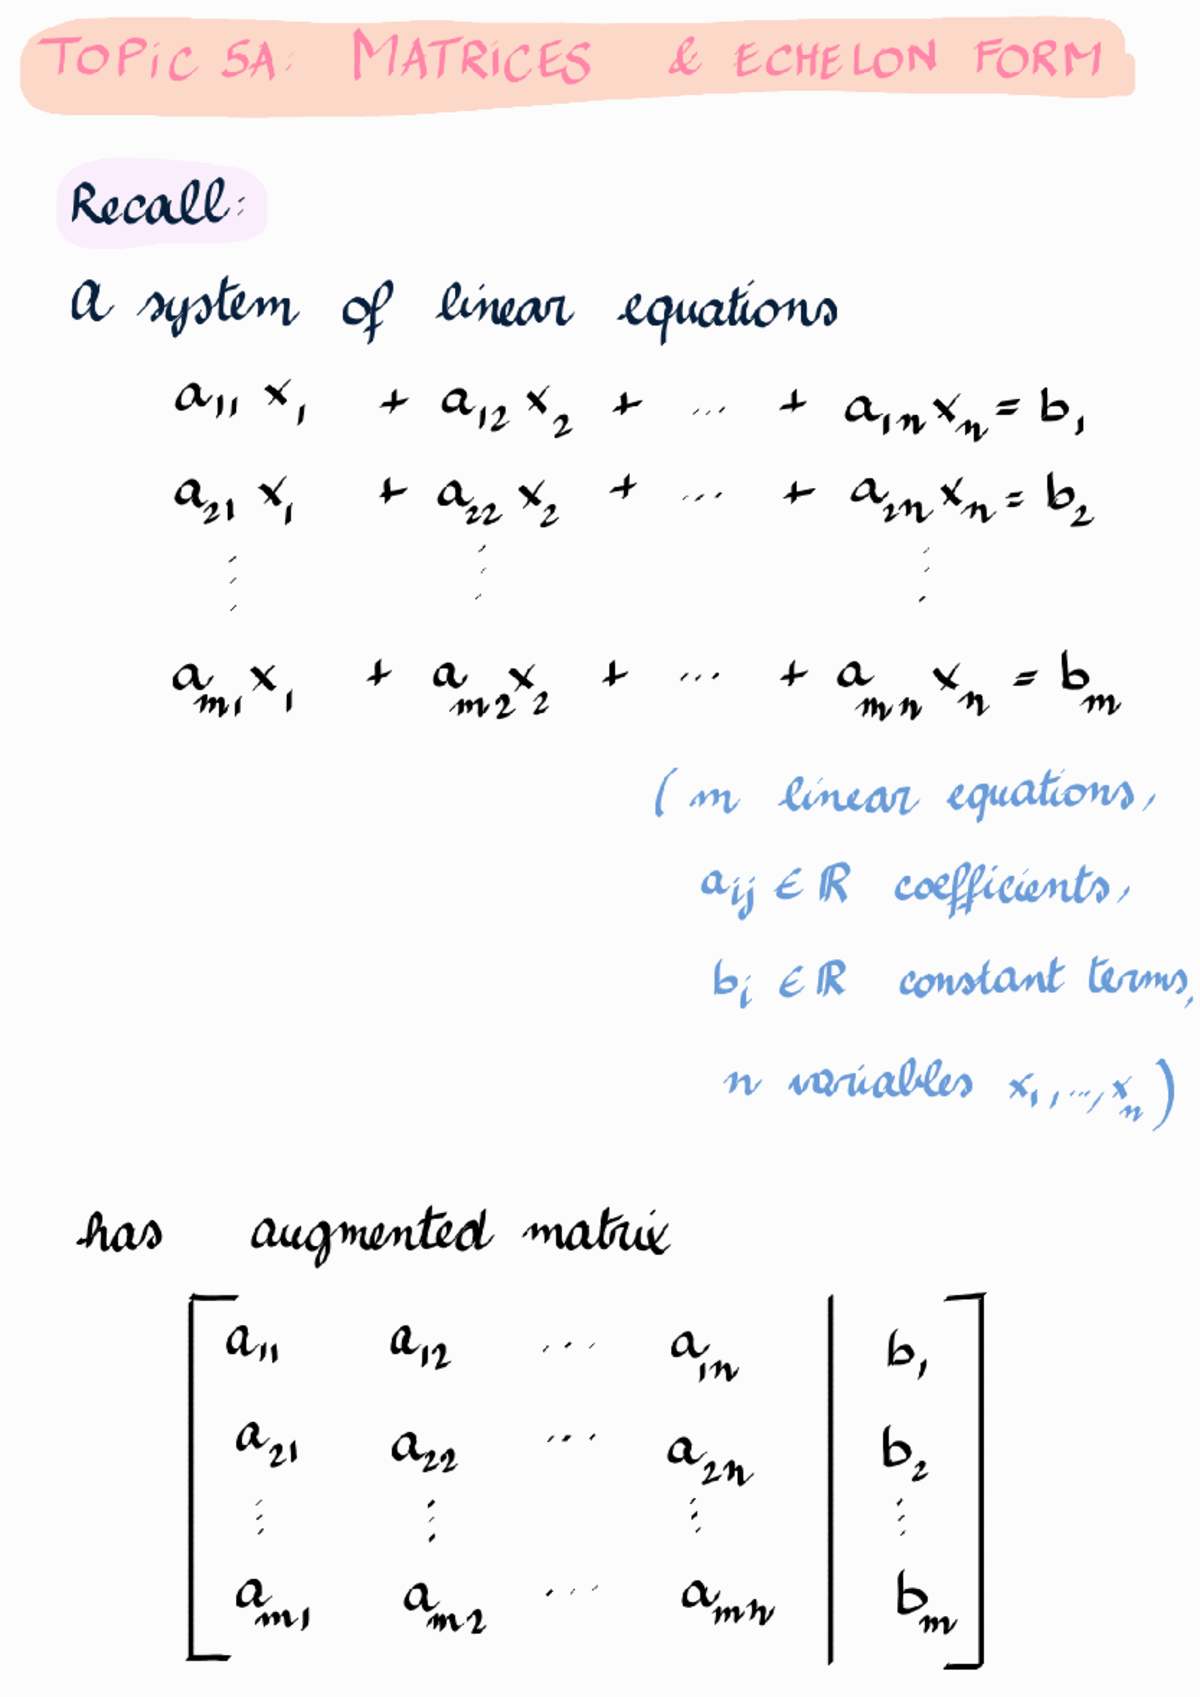 TOPIC 5A: MATRICES & ECHELON FORM
Recall:
A system of linear equations
a₁₁ x₁ + a₁₂ x₂ + ... + a₁ₙ xₙ = b₁
a₂₁ x₁ + a₂₂ x₂ + ... + a₂ₙ xₙ = b₂
⋮ ⋮ ⋮
aₘ₁ x₁ + aₘ₂ x₂ + ... + aₘₙ xₙ = bₘ
(m linear equations,
aᵢⱼ ∈ ℝ coefficients,
bᵢ ∈ ℝ constant terms,
n variables x₁, ..., xₙ)
has augmented matrix
a₁₁ a₁₂ ... a₁ₙ | b₁
a₂₁ a₂₂ ... a₂ₙ | b₂
⋮ ⋮ ⋮ | ⋮
aₘ₁ aₘ₂ ... aₘₙ | bₘ